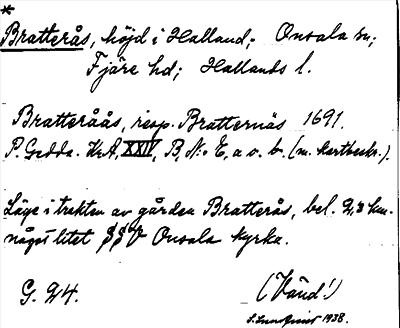 *
Bratterås, höjd i Halland; Onsala sn;
Fjäre hd; Hallands l.
Bratteråås, resp. Bratternäs 1691.
P. Gedda. KrA, XXIV, B, N:o E, a o. b. (m. kartbeskr.).
Läge i trakten av gården Bratterås, bel. 2,8 km.
något litet SSV Onsala kyrka.
G. 24.
(Vänd!)
S. Lundquist 1938.